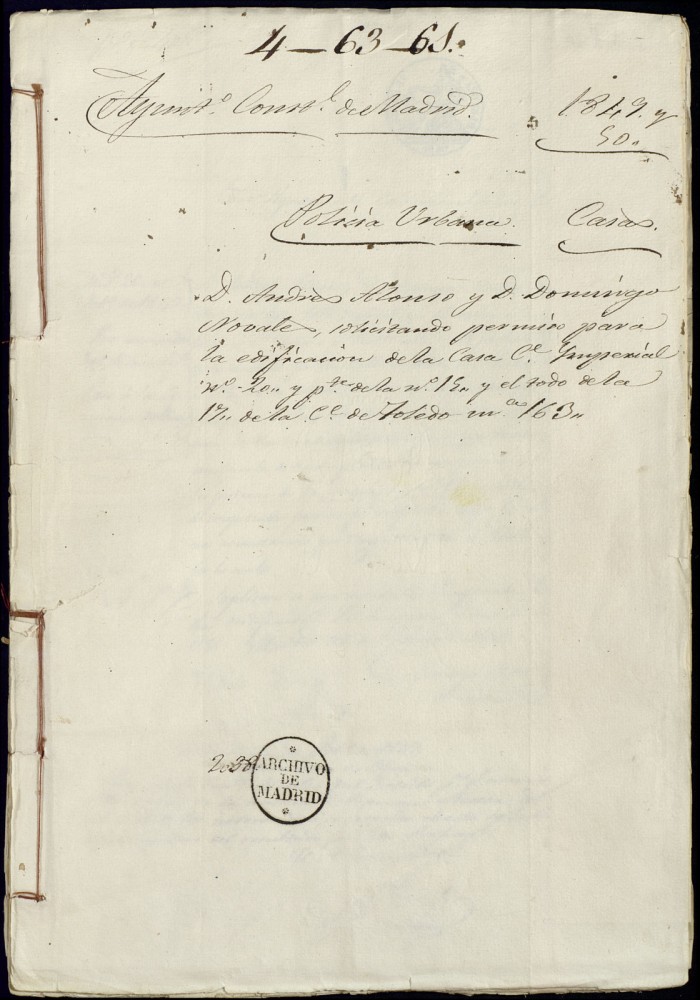 4-63-61.
Ayuntº. Constˡ. de Madrid. 1849. y
50.,
Policia Urbana. Casas.
D. Andres Alonso y D. Domingo
Novales, solicitando permiso para
la edificacion de la Casa Cᵉ. Imperial
nº. 20., y pᵗᵉ de la nº. 15., y el todo de la
17., de la Cᵉ. de Toledo mᶜᵃ 163.,
ARCHIVO
DE
MADRID